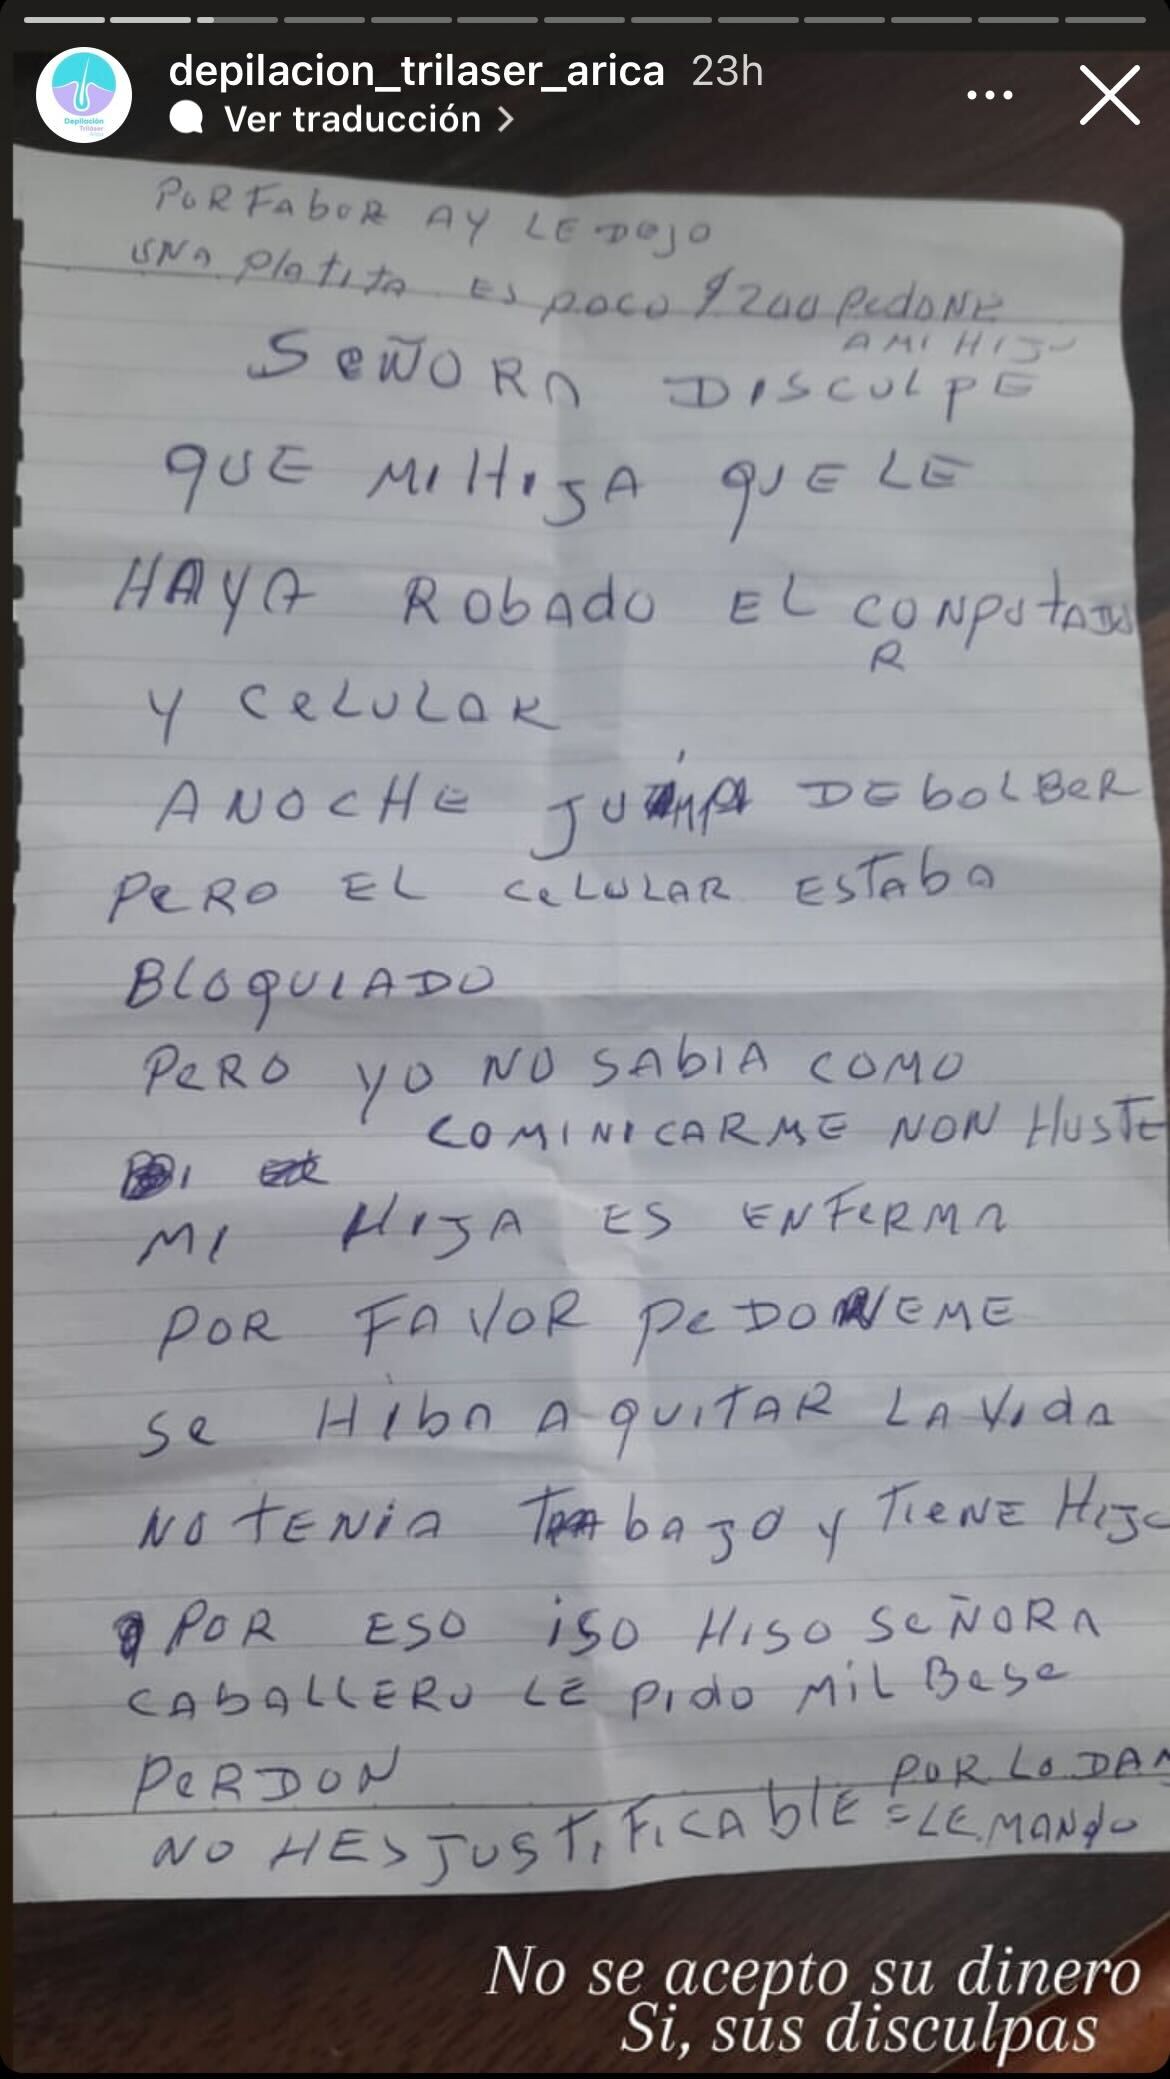 depilacion_trilaser_arica 23h
Ver traducción >
Depilación
Triláser
PORFAbOR AY LE DOJO
UNA PlAtitA ES POCO $200 PEDONE
A MI HIJO
SEÑORA DISCULPE
QUE MI HIJA QUE LE
HAYA RObAdO EL CONPUtADO
R
Y CELULAR
ANOCHE DEbOLBER
PERO EL CELULAR ESTAbA
BLOQUIADO
PERO YO NO SAbIA COMO
COMINICARME NON HUSTE
MI HIJA ES ENFERMA
POR FAVOR PEDONEME
SE HIbA A QUITAR LA VIdA
NO TENIA bAJO Y TIENE HIJO
POR ESO ISO HISO SEÑORA
CAbALLERO LE PIDO MIL BESE
PERDON
POR LO DAM
NO HES JUSTIFICAblE = LE MANdO
No se acepto su dinero
Si, sus disculpas